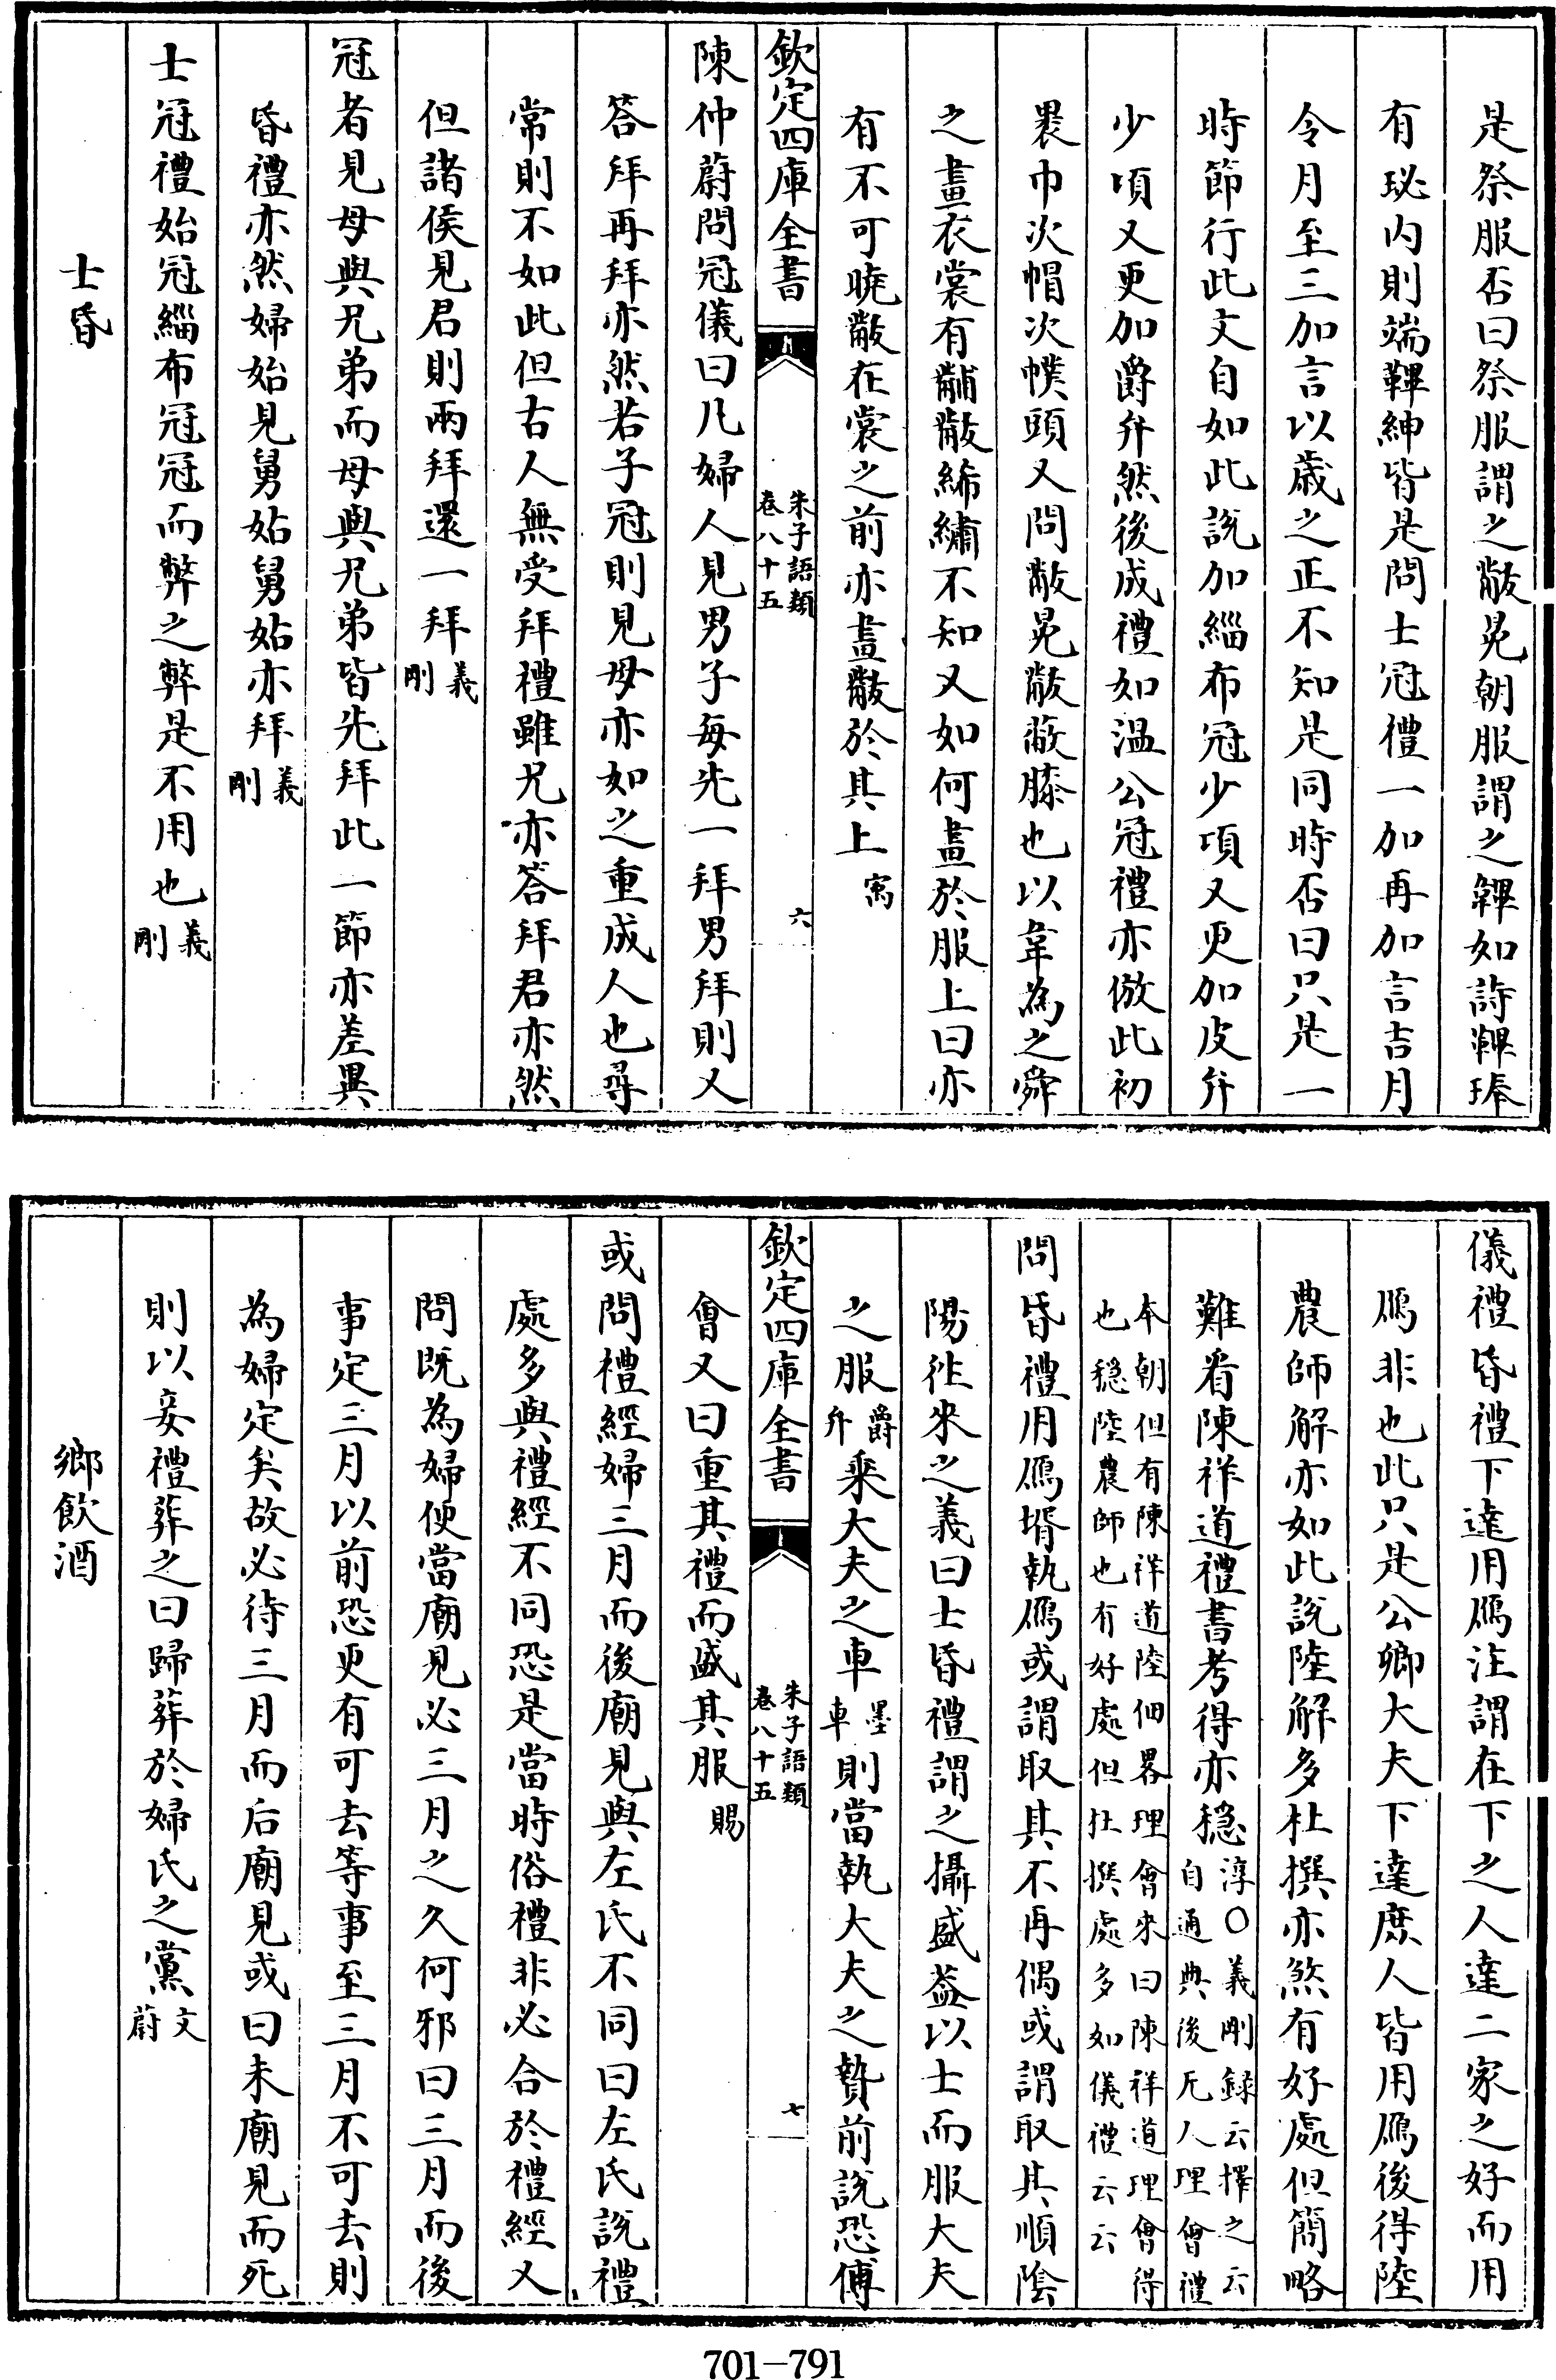 是祭服否曰祭服謂之黻冕朝服謂之韠如詩韠琫
有珌内則端韠紳皆是問士冠禮一加再加言吉月
令月至三加言以歳之正不知是同時否曰只是一
時節行此文自如此說加緇布冠少項又更加皮弁
少項又更加爵弁然後成禮如溫公冠禮亦倣此初
裹巾次帽次幞頭又問黻冕黻蔽膝也以韋為之舜
之畫衣裳有黼黻絺繡不知又如何畫於服上曰亦
有不可曉黻在裳之前亦畫黻於其上寓
欽定四庫全書 朱子語類卷八十五 六
陳仲蔚問冠儀曰凡婦人見男子每先一拜男拜則又
答拜再拜亦然若子冠則見母亦如之重成人也尋
常則不如此但右人無受拜禮雖兄亦答拜君亦然
但諸侯見君則兩拜還一拜義剛
冠者見母與兄弟而母與兄弟皆先拜此一節亦差異
昏禮亦然婦始見舅姑舅姑亦拜義剛
士冠禮始冠緇布冠冠而弊之弊是不用也義剛
士昏
儀禮昏禮下達用鴈注謂在下之人達二家之好而用
鴈非也此只是公卿大夫下達庶人皆用鴈後得陸
農師解亦如此說陸解多杜撰亦煞有好處但簡略
難看陳祥道禮書考得亦穩淳○義剛録云擇之云自通典後无人理會禮
本朝但有陳祥道陸佃畧理會來曰陳祥道理會得也穩陸農師也有好處但杜撰處多如儀禮云云
問昏禮用鴈壻執鴈或謂取其不再偶或謂取其順陰
陽徃來之義曰士昏禮謂之攝盛葢以士而服大夫
之服爵弁乘大夫之車墨車則當執大夫之贄前說恐傅
欽定四庫全書 朱子語類卷八十五 七
會又曰重其禮而盛其服賜
或問禮經婦三月而後廟見與左氏不同曰左氏說禮
處多與禮經不同恐是當時俗禮非必合於禮經又
問既為婦便當廟見必三月之久何邪曰三月而後
事定三月以前恐更有可去等事至三月不可去則
為婦定矣故必待三月而后廟見或曰未廟見而死
則以妾禮葬之曰歸葬於婦氏之黨文蔚
鄉飲酒
701-791